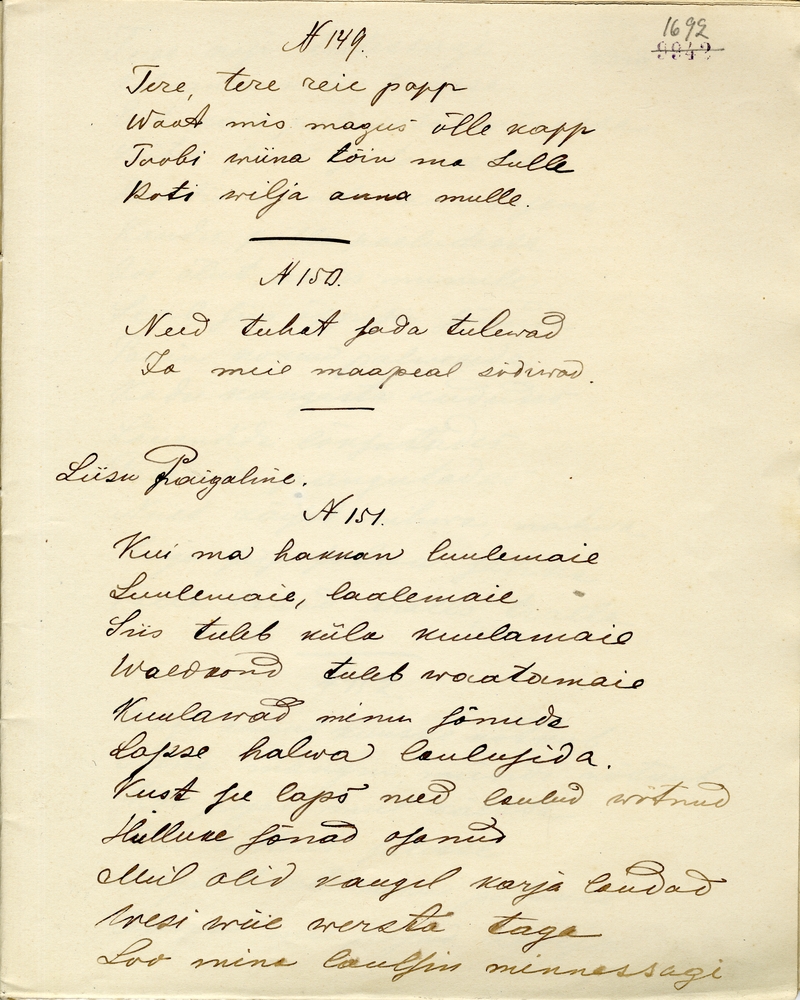 1692
9942
N 149.
Tere, tere reie papp
Waat mis magus õlle kapp
Toobi wiina tõin ma Sulle
Koti wilja anna mulle.
N 150.
Need tuhat sada tulewad
Ja meie maapeal sõdiwad.
Liisu Raigaline.
N 151.
Kui ma hakkan luulemaie
Luulemaie, laalemaie
Siis tuleb küla kuulamaie
Waldkond tuleb waatamaie
Kuulawad minu sõnuda
Lapse halwa laulusida.
Kust se laps need laulud wõtnud
Hulluke sõnad osanud
Meil olid kaugel karja laudad
Wesi wiie wersta taga
Loo mina laulsin minnessagi